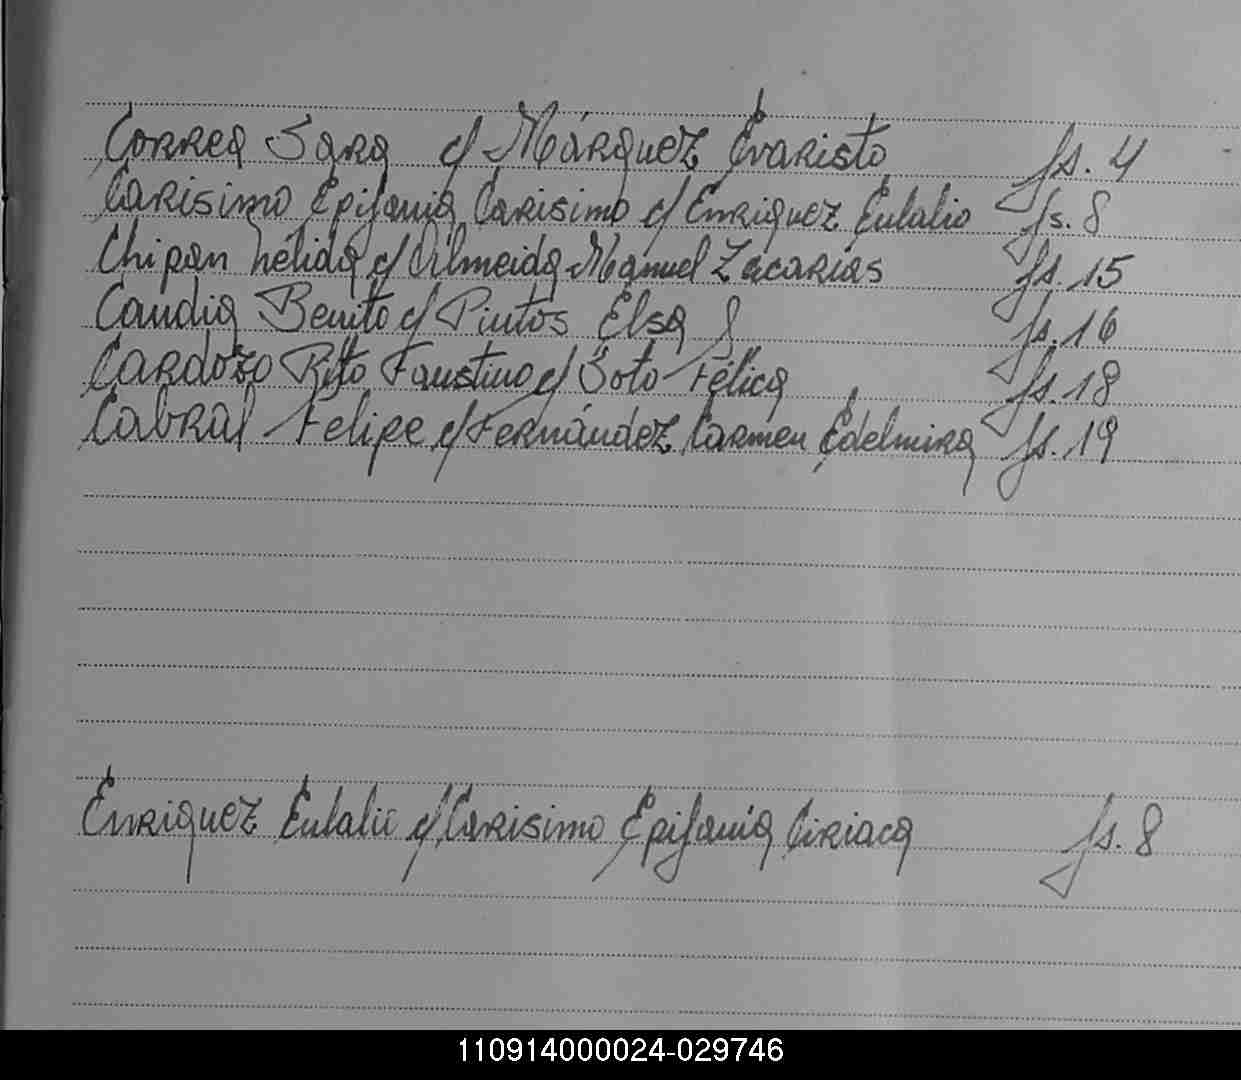 Correa Sara c/ Márquez Evaristo fs. 4
Carisimo Epifania Carisimo c/ Enriquez Eulalio fs. 8
Chipan Nélida c/ Almeida Manuel Zacarias fs. 15
Candia Benito c/ Pintos Elsa fs. 16
Cardozo Rito Faustino c/ Soto Félica fs. 18
Cabral Felipe c/ Fernández Carmen Edelmira fs. 19
Enriquez Eulalio c/ Carisimo Epifania Ciriaca fs. 8
110914000024-029746